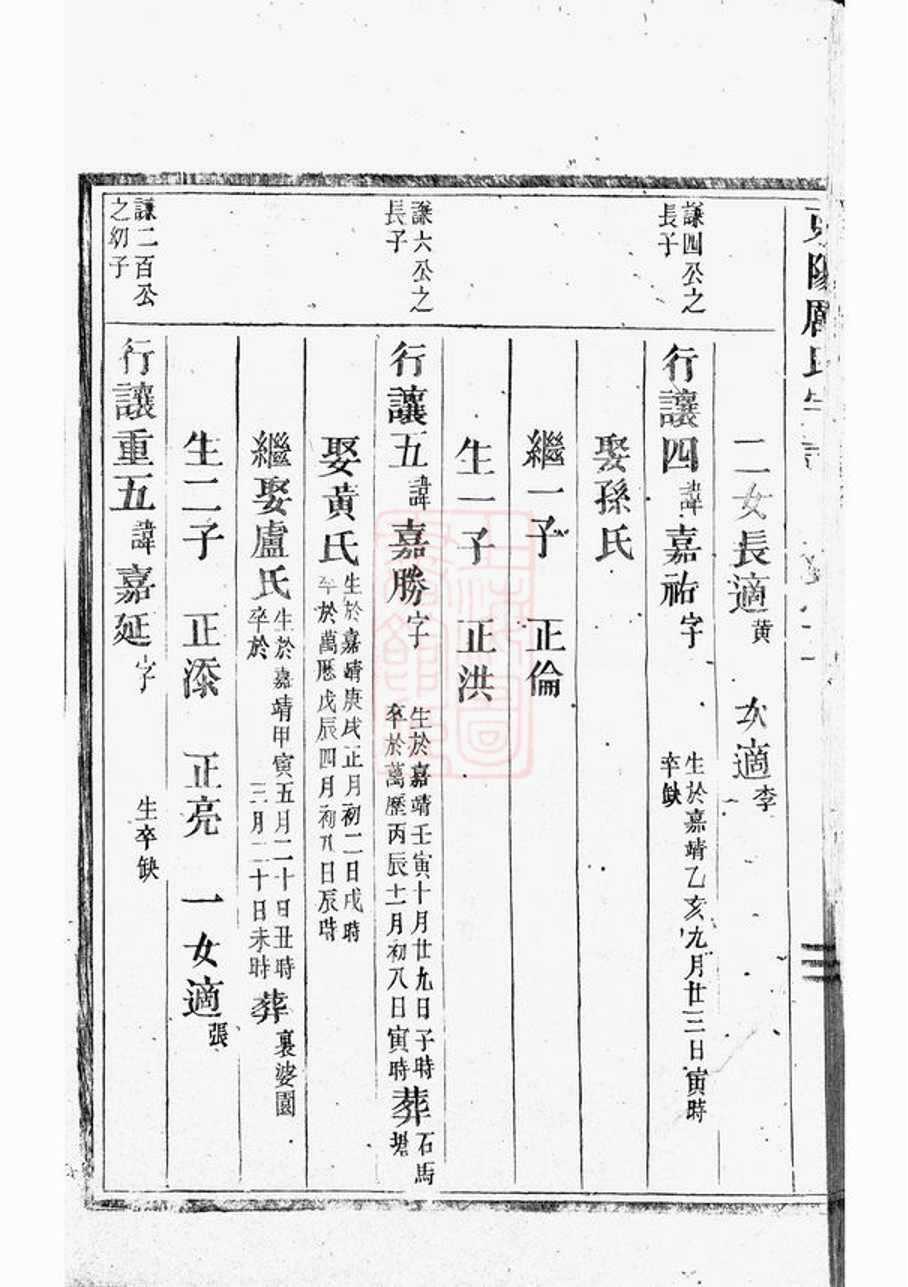 東陽厲氏宗譜
二女長適黃 次適李
謙四公之長子
行讓四諱嘉祐字 生於嘉靖乙亥九月廿三日寅時卒缺
娶孫氏
繼一子 正倫
生一子 正洪
謙六公之長子
行讓五諱嘉勝字 生於嘉靖壬寅十月廿九日子時卒於萬歷丙辰十一月初八日寅時葬石馬塘
娶黃氏生於嘉靖庚戌正月初二日戌時卒於萬歷戊辰四月初八日辰時
繼娶盧氏生於嘉靖甲寅五月二十日丑時卒於 三月二十日未時葬裏婆園
生二子 正添 正亮 一女適張
謙二百公之幼子
行讓重五諱嘉延字 生卒缺